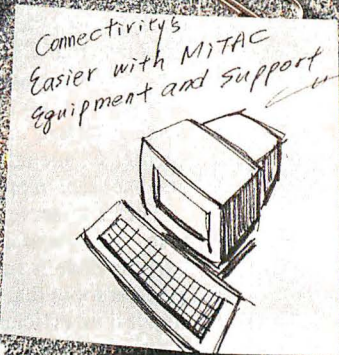 Connectivity's
Easier with MiTAC
Equipment and Support